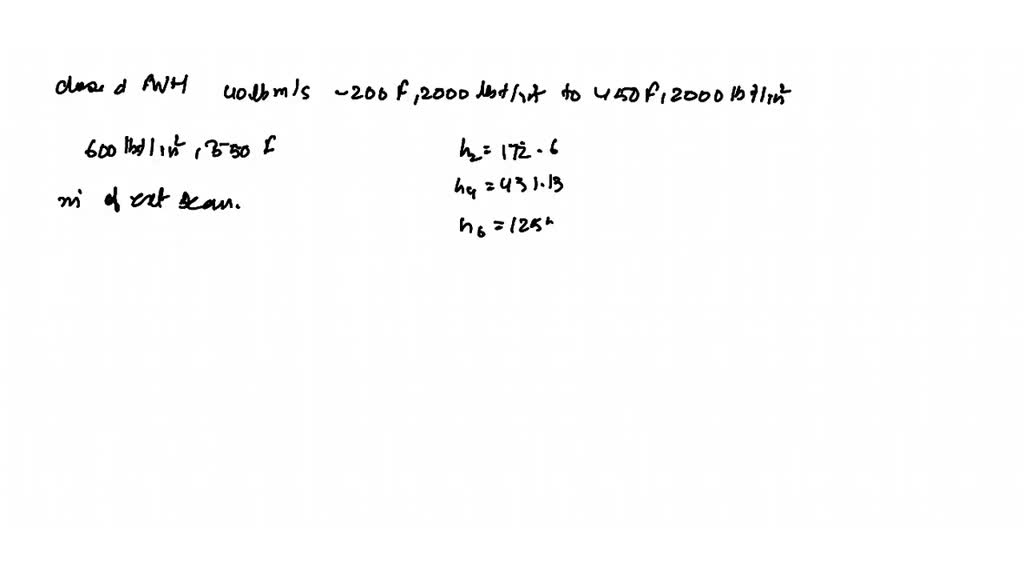 closed FWH 40 lbm/s ~200 F, 2000 lbf/in² to 450 F, 2000 lbf/in²
600 lbf/in², 550 F
h₂ = 172.6
ṁ of ext steam.
h₄ = 431.13
h₆ = 125